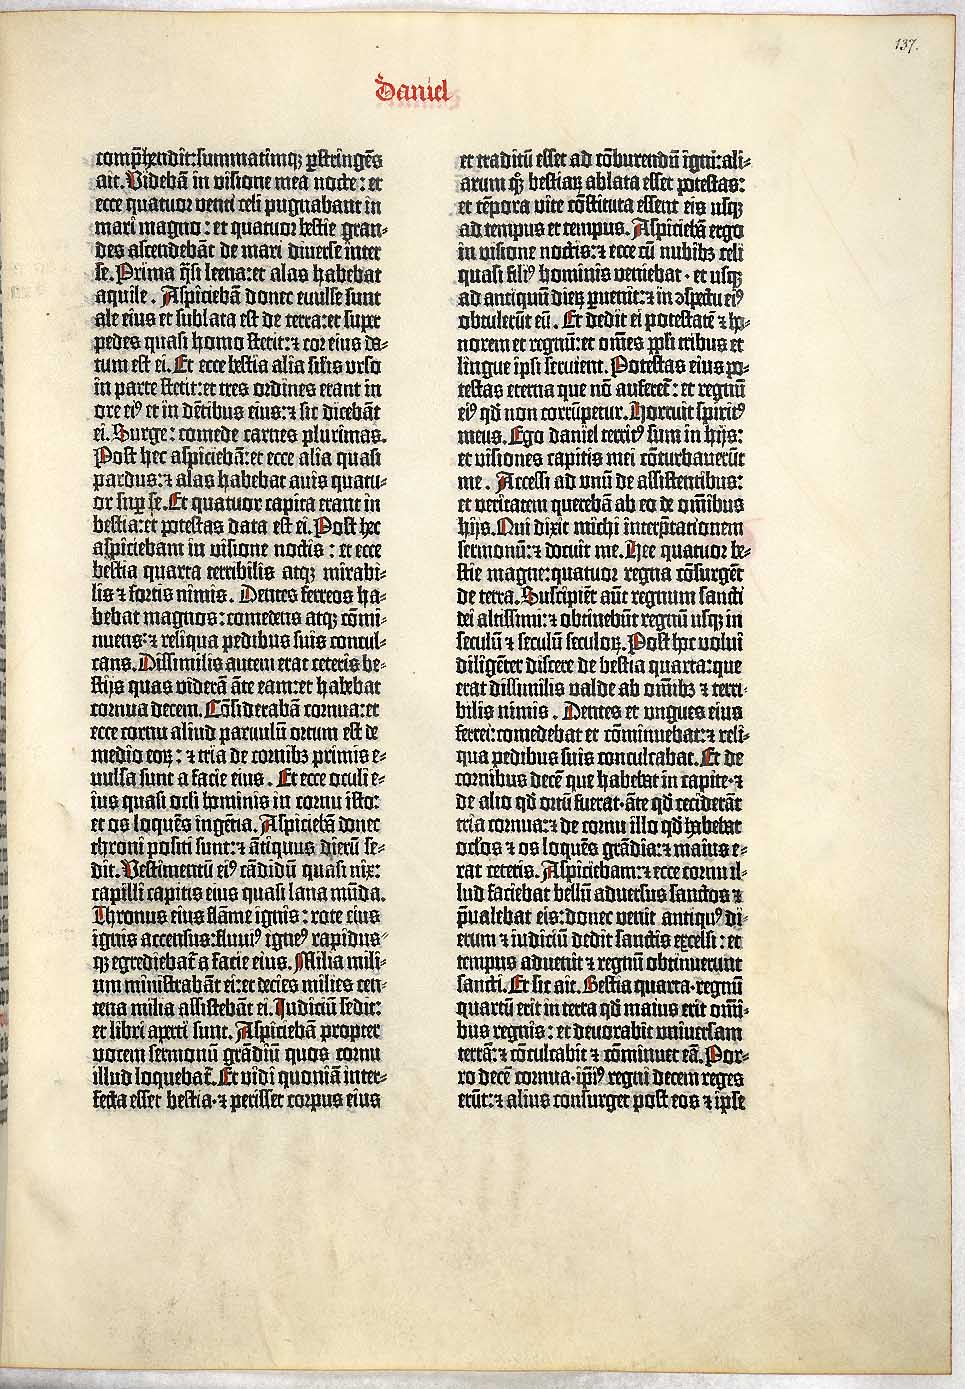 137.
Daniel
comp̄hendit: summatimq; ꝑstringēs
ait. Videbā in visione mea nocte: et
ecce quatuor venti celi pugnabant in
mari magno: et quatuor bestie gran-
des ascendebāt de mari diverse inter
se. Prima q̄si leena: et alas habebat
aquile. Aspiciebā donec evulse sunt
ale eius et sublata est de terra: et super
pedes quasi homo stetit: ⁊ cor eius da-
tum est ei. Et ecce bestia alia sil̄is urso
in parte stetit: et tres ordines erant in
ore eiꝰ et in dētibus eius: ⁊ sic dicebāt
ei. Surge: comede carnes plurimas.
Post hec aspiciebā: et ecce alia quasi
pardus: ⁊ alas habebat avis quatu-
or suꝑ se. Et quatuor capita erant in
bestia: et potestas data est ei. Post hec
aspiciebam in visione noctis: et ecce
bestia quarta terribilis atq; mirabi-
lis ⁊ fortis nimis. Dentes ferreos ha-
bebat magnos: comedens atq; cōmi-
nuens: ⁊ reliqua pedibus suis concul-
cans. Dissimilis autem erat ceteris be-
stijs quas viderā āte eam: et habebat
cornua decem. Cōsiderabā cornua: et
ecce cornu aliud parvulū ortum est de
medio eoꝝ: ⁊ tria de cornibꝫ primis e-
vulsa sunt a facie eius. Et ecce oculi e-
ius quasi ocl̄i hominis in cornu isto:
et os loquēs ingētia. Aspiciebā donec
throni positi sunt: ⁊ ātiquus dierū se-
dit. Vestimentū eiꝰ cādidū quasi nix:
capilli capitis eius quasi lana mūda.
Thronus eius flāme ignis: rote eius
ignis accensus: fluviꝰ igneꝰ rapidus-
q; egrediebat̄ a facie eius. Milia mili-
um ministrabāt ei: et decies milies cen-
tena milia assistebāt ei. Iudiciū sedit:
et libri aperti sunt. Aspiciebā propter
vocem sermonū grādiū quos cornu
illud loquebat̄. Et vidi quoniā inter-
fecta esset bestia· ⁊ perisset corpus eius
et traditū esset ad cōburendū igni: ali-
arum qꝫ bestiaꝝ ablata esset potestas:
et tēpora vite cōstituta essent eis usq;
ad tempus et tempus. Aspiciebā ergo
in visione noctis: ⁊ ecce cū nubibꝫ celi
quasi filiꝰ hominis veniebat· et usq;
ad antiquū dieꝝ ꝑvenit: ⁊ in ꝯspectu eiꝰ
obtulerūt eū. Et dedit ei potestatē ⁊ ho-
norem et regnū: et om̄es ppl̄i tribus et
lingue ipsi servient. Potestas eius po-
testas eterna que nō auferet̄: et regnū
eiꝰ qd̄ non corrūpetur. Horruit spiritꝰ
meus. Ego daniel territꝰ sum in hijs:
et visiones capitis mei cōturbaverūt
me. Accessi ad unū de assistentibus:
et veritatem querebā ab eo de om̄ibus
hijs. Qui dixit michi interp̄tationem
sermonū: ⁊ docuit me. Hee quatuor be-
stie magne: quatuor regna cōsurgēt
de terra. Suscipiēt aūt regnum sancti
dei altissimi: ⁊ obtinebūt regnū usq; in
seculū ⁊ seculū seculoꝝ. Post hec volui
diligēter discere de bestia quarta: que
erat dissimilis valde ab om̄ibꝫ ⁊ terri-
bilis nimis. Dentes et ungues eius
ferrei: comedebat et cōminuebat: ⁊ reli-
qua pedibus suis conculcabat. Et de
cornibus decē que habebat in capite· ⁊
de alio qd̄ ortū fuerat· āte qd̄ ceciderāt
tria cornua: ⁊ de cornu illo qd̄ habebat
ocl̄os ⁊ os loquēs grādia: ⁊ maius e-
rat ceteris. Aspiciebam: ⁊ ecce cornu il-
lud faciebat bellū adversus sanctos ⁊
p̄valebat eis: donec venit antiquꝰ di-
erum ⁊ iudiciū dedit sanctis excelsi: et
tempus advenit ⁊ regnū obtinuerunt
sancti. Et sic ait. Bestia quarta· regnū
quartū erit in terra qd̄ maius erit om̄i-
bus regnis: et devorabit universam
terrā: ⁊ cōculcabit ⁊ cōminuet eā. Por-
ro decē cornua· ip̄iꝰ regni decem reges
erūt: ⁊ alius consurget post eos ⁊ ipse